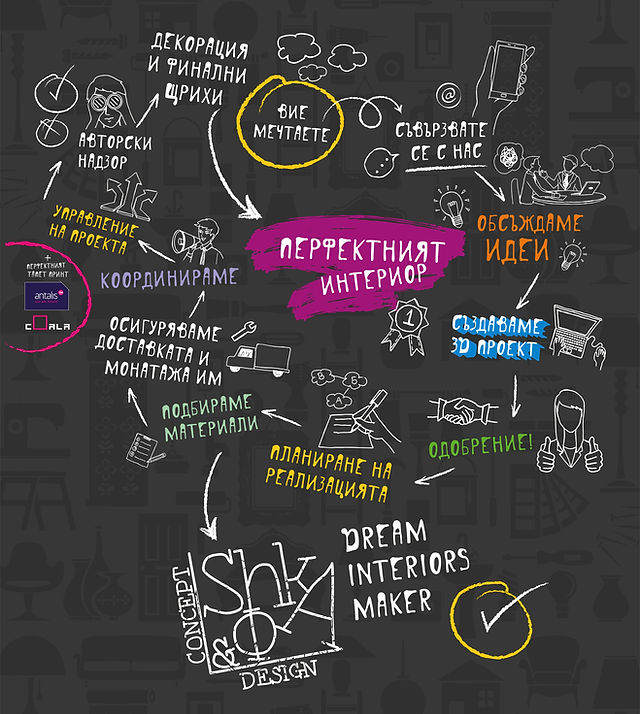 ДЕКОРАЦИЯ
И ФИНАЛНИ
ЩРИХИ
ВИЕ
МЕЧТАЕТЕ
@
СЪВЪРЗВАТЕ
СЕ С НАС
АВТОРСКИ
НАДЗОР
УПРАВЛЕНИЕ
НА ПРОЕКТА
ОБСЪЖДАМЕ
ИДЕИ
ПЕРФЕКТНИЯТ
ИНТЕРИОР
+
ПЕРФЕКТНИЯТ
ТАПЕТ ПРИНТ
antalis
COALA
КООРДИНИРАМЕ
1
СЪЗДАВАМЕ
3D ПРОЕКТ
ОСИГУРЯВАМЕ
ДОСТАВКАТА И
МОНАТАЖА ИМ
ПОДБИРАМЕ
МАТЕРИАЛИ
ОДОБРЕНИЕ!
ПЛАНИРАНЕ НА
РЕАЛИЗАЦИЯТА
DREAM
INTERIORS
MAKER
CONCEPT
Shk
&
DESIGN